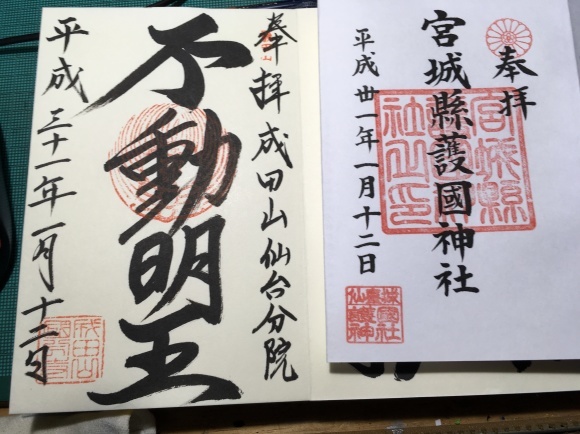 奉拝
宮城縣護國神社
平成丗一年一月十二日
宮城縣
社之印
奉拝 成田山仙台分院
不動明王
平成三十一年一月十二日
成田山